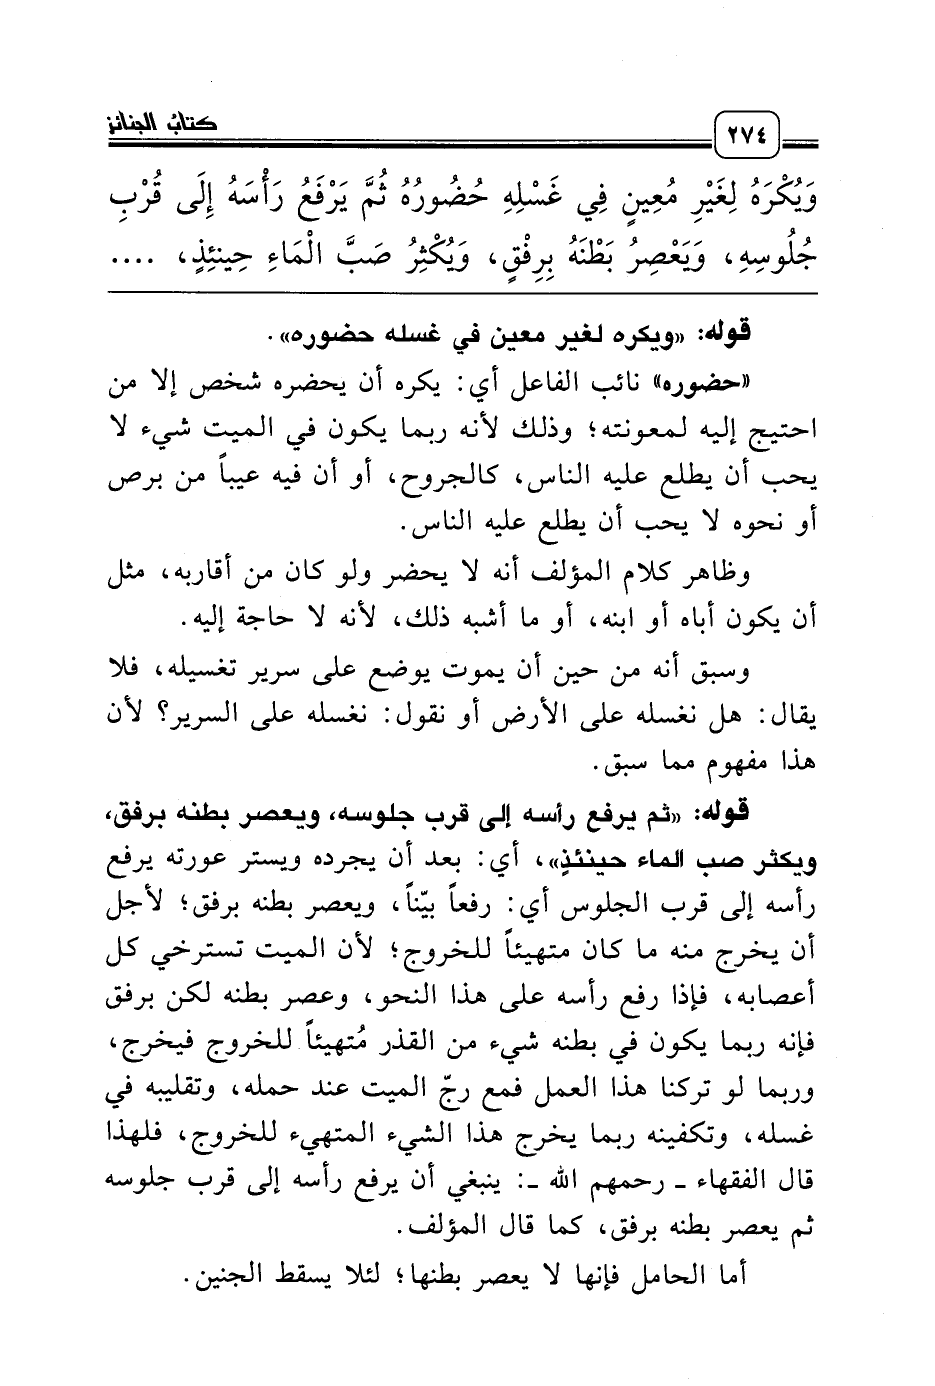 كتاب الجنائز
٢٧٤
وَيُكْرَهُ لِغَيْرِ مُعِينٍ فِي غَسْلِهِ حُضُورُهُ ثُمَّ يَرْفَعُ رَأْسَهُ إِلَى قُرْبِ
جُلُوسِهِ، وَيَعْصِرُ بَطْنَهُ بِرِفْقٍ، وَيُكْثِرُ صَبَّ الْمَاءِ حِينَئِذٍ، ....
قوله: «ويكره لغير معين في غسله حضوره».
«حضوره» نائب الفاعل أي: يكره أن يحضره شخص إلا من
احتيج إليه لمعونته؛ وذلك لأنه ربما يكون في الميت شيء لا
يحب أن يطلع عليه الناس، كالجروح، أو أن فيه عيباً من برص
أو نحوه لا يحب أن يطلع عليه الناس.
وظاهر كلام المؤلف أنه لا يحضر ولو كان من أقاربه، مثل
أن يكون أباه أو ابنه، أو ما أشبه ذلك، لأنه لا حاجة إليه.
وسبق أنه من حين أن يموت يوضع على سرير تغسيله، فلا
يقال: هل نغسله على الأرض أو نقول: نغسله على السرير؟ لأن
هذا مفهوم مما سبق.
قوله: «ثم يرفع رأسه إلى قرب جلوسه، ويعصر بطنه برفق،
ويكثر صب الماء حينئذٍ»، أي: بعد أن يجرده ويستر عورته يرفع
رأسه إلى قرب الجلوس أي: رفعاً بيّناً، ويعصر بطنه برفق؛ لأجل
أن يخرج منه ما كان متهيئاً للخروج؛ لأن الميت تسترخي كل
أعصابه، فإذا رفع رأسه على هذا النحو، وعصر بطنه لكن برفق
فإنه ربما يكون في بطنه شيء من القذر مُتهيئاً للخروج فيخرج،
وربما لو تركنا هذا العمل فمع رجّ الميت عند حمله، وتقليبه في
غسله، وتكفينه ربما يخرج هذا الشيء المتهيء للخروج، فلهذا
قال الفقهاء ـ رحمهم الله ـ: ينبغي أن يرفع رأسه إلى قرب جلوسه
ثم يعصر بطنه برفق، كما قال المؤلف.
أما الحامل فإنها لا يعصر بطنها؛ لئلا يسقط الجنين.